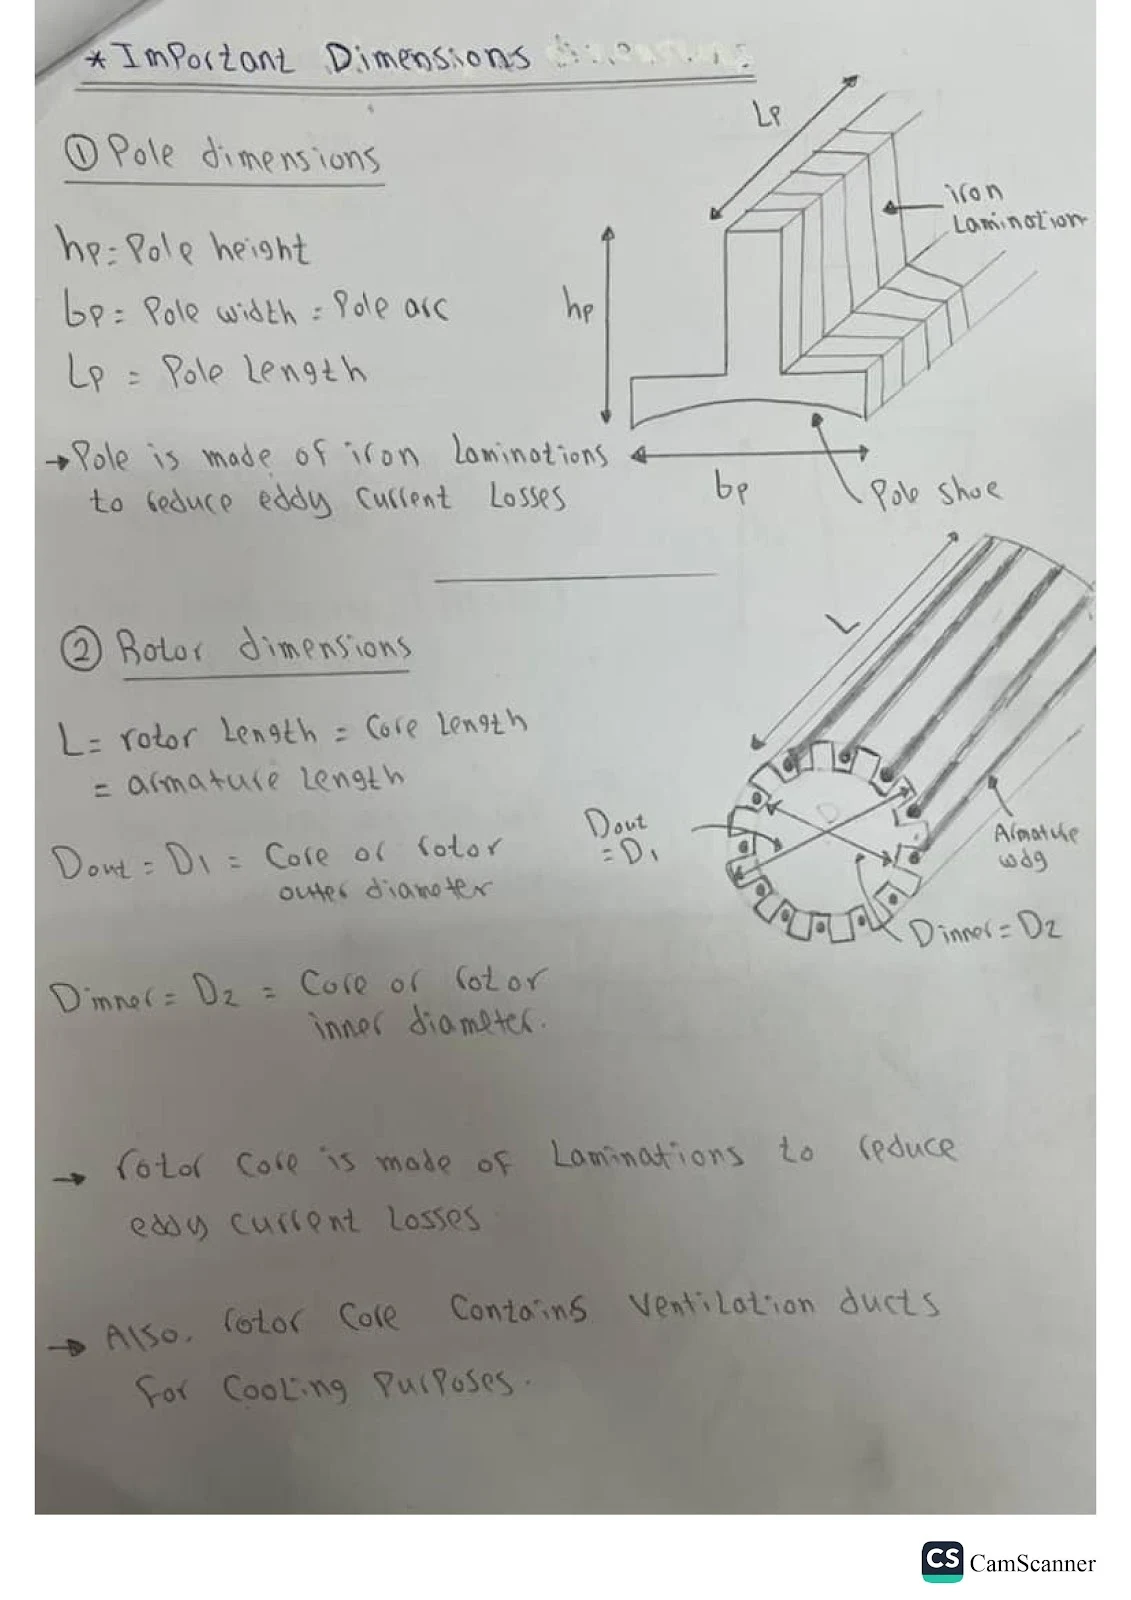 * Important Dimensions
① Pole dimensions
hp = Pole height
bp = Pole width = Pole arc
Lp = Pole Length
→ Pole is made of iron Laminations
to reduce eddy current Losses
Lp
iron
Lamination
hp
bp
Pole shoe
② Rotor dimensions
L = rotor Length = Core Length
= armature Length
Dout = D1 = Core or rotor
outer diameter
Dinner = D2 = Core or rotor
inner diameter.
L
Dout
= D1
Armature
wdg
Dinner = D2
→ rotor Core is made of Laminations to reduce
eddy current Losses
→ Also, rotor Core Contains ventilation ducts
For Cooling Purposes.
CS CamScanner